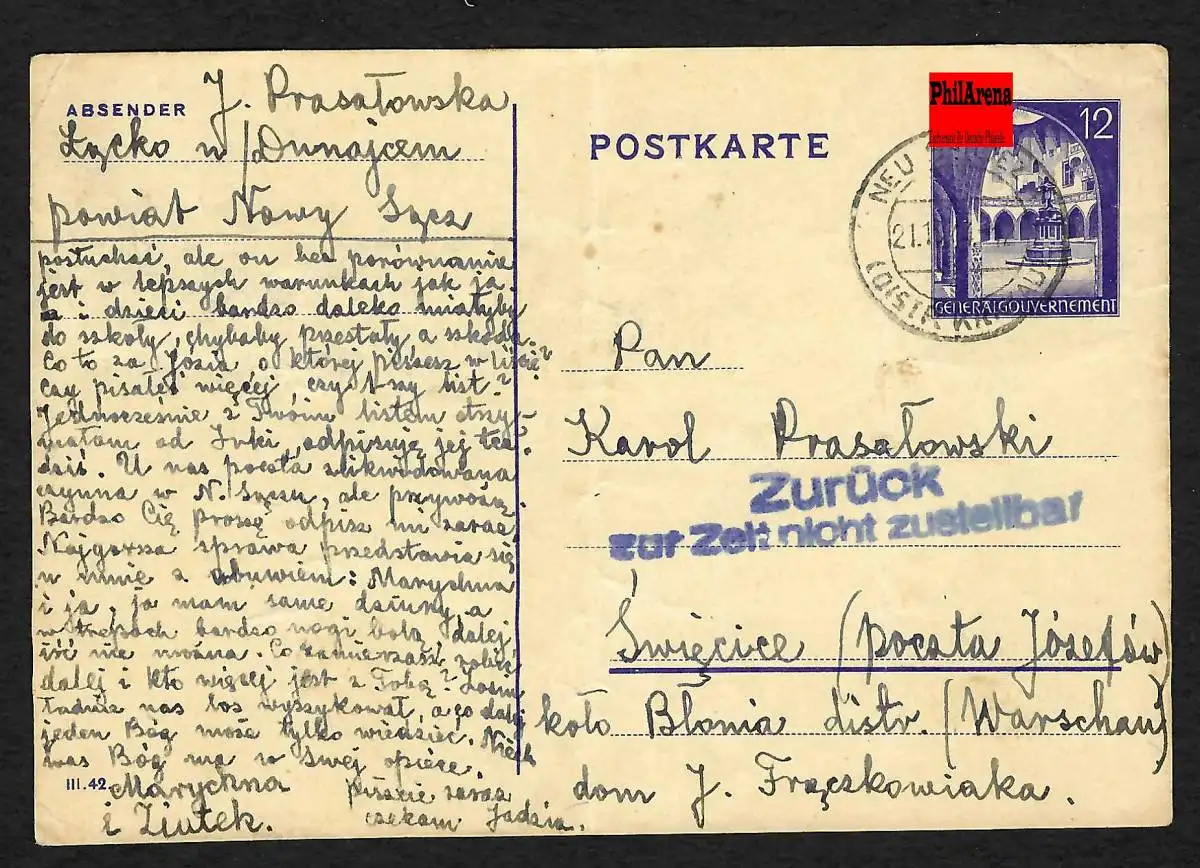 ABSENDER J. Prasałowska
Łącko n/Dunajcem
powiat Nowy Sącz
posłuchać, ale on bez porównania
jest w lepszych warunkach jak ja.
a i dzieci bardzo daleko miałyby
do szkoły, chybaby przestały a szkoda.
Co to za Józia o której piszesz w liście?
czy pisałeś więcej czy 1-szy list?
Jednocześnie z Twoim listem otrzy-
małam od Inki, odpisuję jej też
dziś. U nas poczta zlikwidowana
czynna w N. Sączu, ale przywożą.
Bardzo Cię proszę odpisz mi zaraz
Najgorsza sprawa przedstawia się
u mnie z obuwiem: Marychna
i ja, ja mam same dziury, a
w trepach bardzo nogi bolą, dalej
iść nie można. Co zamierzasz robić
dalej i kto więcej jest z Tobą? Łosin
ładnie nas los wyszykował, a co dalej
jeden Bóg może tylko wiedzieć. Niech
was Bóg ma w swej opiece.
Marychna
i Ziutek.
piszcie zaraz
czekam Jadzia.
III.42
POSTKARTE
PhilArena
12
NEU
21.1
(DISTR. KRAKAU)
GENERALGOUVERNEMENT
Pan
Karol Prasałowski
Zurück
zur Zeit nicht zustellbar
Święcice (poczta Józefów
koło Błonia distr. (Warschau)
dom J. Frączkowiaka.